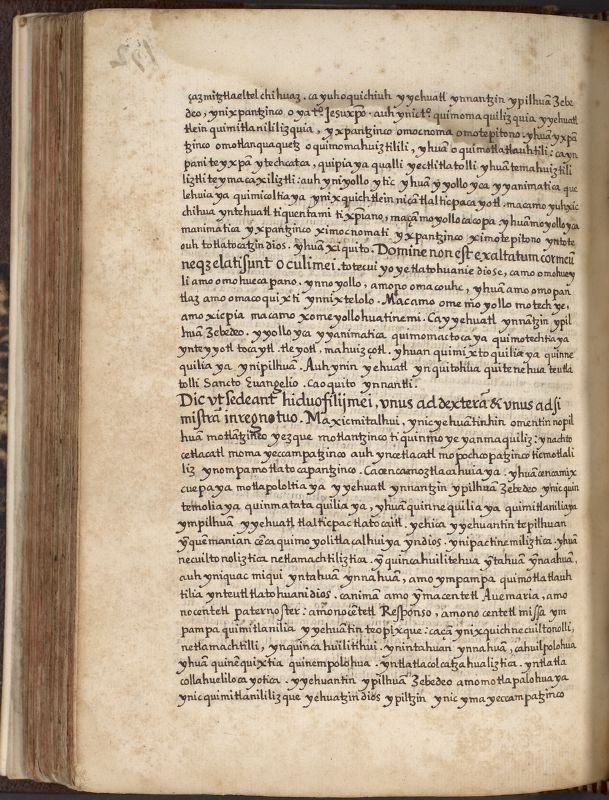 çazmitztlaeltelchihuaz. ca yuhoquichiuh yyehuatl ynnantzin ypilhuã Zebe
deo, ynixpantzinco o ya tº. Jesuxp̃o. auh ynictº. quimomaquilizquia yyehuatl
tlein quimitlanililizquia, yxpantzinco omocnoma omotepitono. yhuã yxpã
tzinco omotlanquaquetz oquimomahuiztilili, yhuã oquimotlatlauhtili: ca yn
pani te yxpã ytechcatca, quipia ya qualli yectli tlatolli yhuã temahuiztili
liztli teymacaxiliztli: auh yniyollo ytic yhuã yyollo yca yyanimatica que
lehuia ya quimicoltia ya ynixquich tlein nicã tlalticpaca yotl. macamo yuhxic
chihua yntehuatl tiquentami tixp̃iano, maçamo yollocacopa. yhuãmo yolloyca
manimatica yxpantzinco ximocnomati yxpantzinco ximotepitono yntote
ouh totlatocatzin dios. yhuã xiquito. Domine non est exaltatum cor meũ
neqȝ elati sunt oculi mei. totecui yoyetlatohuanie diose, camo omohuey
li amo omohuecapano. ynnoyollo, amono omacouhc, yhuã amo omopan
tlaz amo omacoquixti ynnixtelolo. Macamo ome m̃o yollo motech ye,
amo xicpia macamo xomeyollohuatinemi. Ca yyehuatl ynnãtzin ypil
huã Zebedeo. yyollo yca yyanimatica quimomactoca ya quimotechtia ya
ynteyyotl tocaytl. tleyotl, mahuizçotl. yhuan quimixtoquilia ya quinne
quilia ya ynipilhuã. Auh ynin yehuatl ynquitohua quitenehua teutla
tolli Sancto Euangelio. caoquito ynnantli.
Dic vt sedeant hi duo filij mei, vnus ad dexterã & vnus ad si
nistrã in regno tuo. Maxicmitalhui, ynic yehuãtin hin omentin nopil
huã motlãtzinco yezque motlantzinco tiquinmoyeyanmaquiliz: ynachto
cetlacatl momayeccampatzinco auh yncetlacatl mopochcopatzinco ticmotlali
liz ynompamotlatocapantzinco. Cacencamoztlacahuia ya. yhuãcencamix
cuepa ya motlapololtia ya yyehuatl ynnantzin ypilhuã Zebedeo ynic quin
temolia ya quinmatataquilia ya, yhuã quinnequilia ya quimitlanilia ya
ympilhuã yyehuatl tlalticpac tlatocaitl. yehica yyehuantin tepilhuan
ỹquemanian cẽca quimoyolitlacalhui ya yndios. ynipactinemiliztica. yhuã
necuiltonoliztica netlamachtiliztica. ỹquincahuilitehua ỹtahuã ỹnãhuã,
auh yniquac miqui yntahuã ynnahuã, amo ympampa quimotlatlauh
tilia ynteutl tlatohuani dios. canimã amo ỹmacentetl Auemaria, amo
no centetl paternoster: amono cẽtetl Responso, amono centetl missa ym
pampa quimitlanilia yyehuãtin teopixque: cacã ynixquich necuiltonolli,
netlamachtilli, ynquincahuilitihui. ynintahuan ynnahuã, çahuilpolohua
yhuã quinẽquixtia quinempolohua. yntlatlacolcatzahualiztica. yntlatla
collahueliloca yotica. yyehuantin ypilhuã Zebedeo amo motlapalohua ya
ynic quimitlanililizque yehuatzin dios ypiltzin ynic ymayeccampatzinco